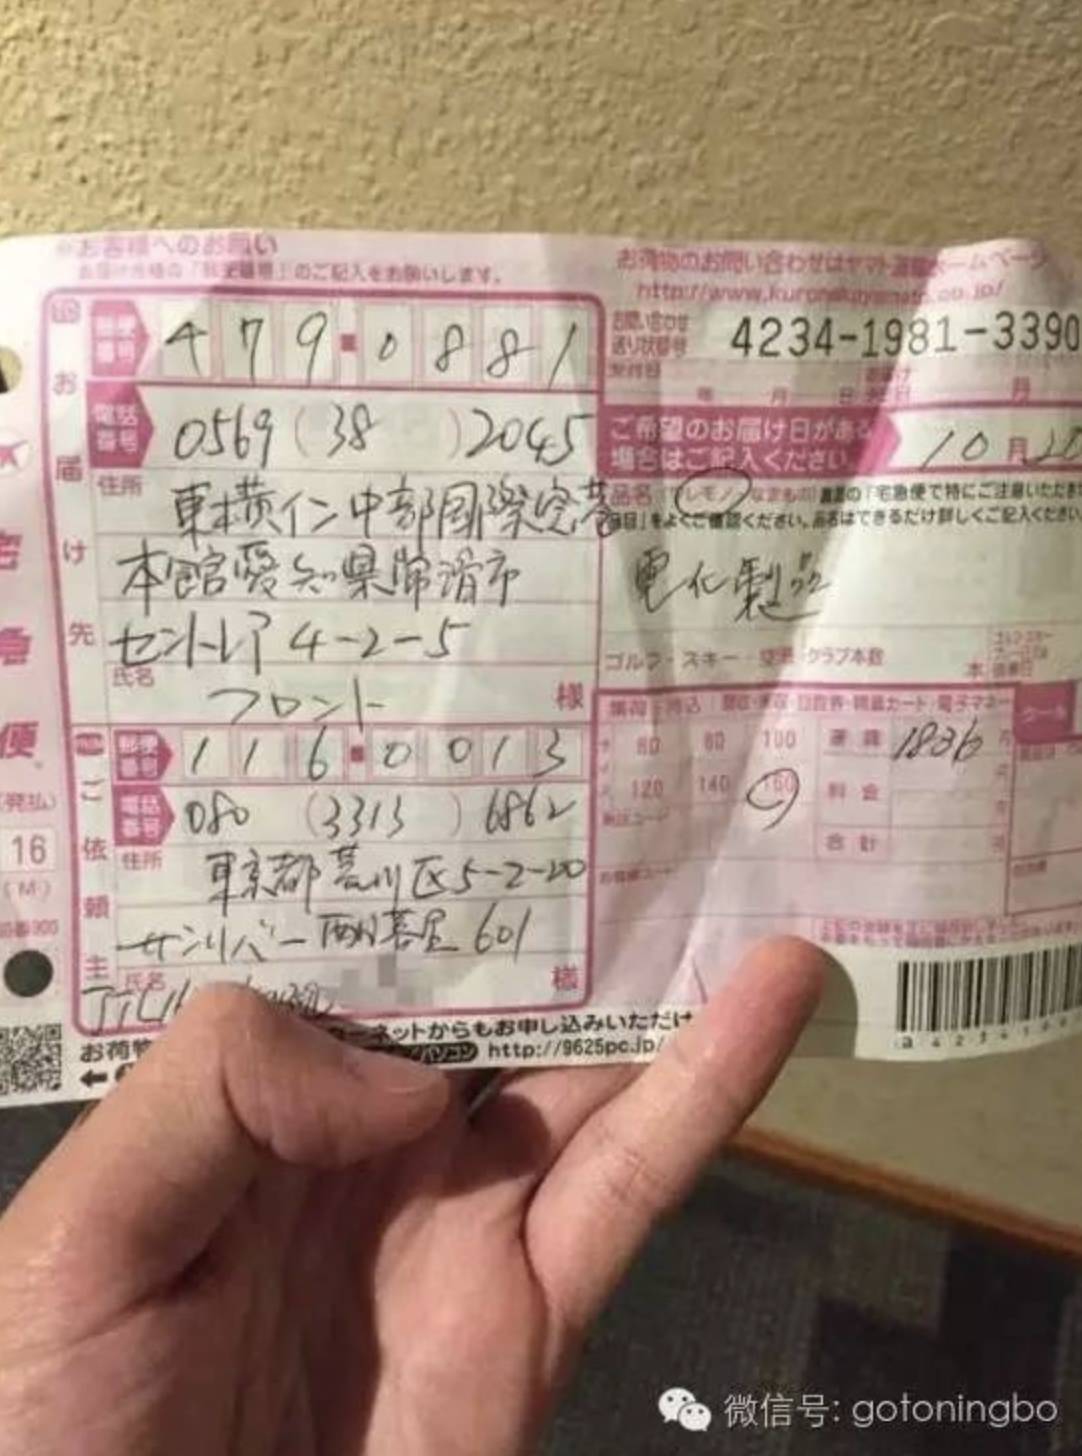 お客様へのお願い
のご記入をお願いします。
お荷物のお問い合わせはヤマト運輸ホームページ
http://www.kuronekoyamato.co.jp/
お届け先
郵便番号 479-0881
お問い合わせ送り状番号 4234-1981-3390
年 月 日 月
電話番号 0569(38)2045
ご希望のお届け日がある
場合はご記入ください
10月20
住所
東横イン中部国際空港
本館愛知県常滑市
セントレア4-2-5
品名(ワレモノ・なまもの)裏面の「宅急便で特にご注意いただき
項目」をよくご確認ください。品名はできるだけ詳しくご記入ください。
電化製品
ゴルフ・スキー・空港 クラブ本数 本
氏名
フロント 様
60 80 100
120 140 160
運賃 1836 円
料金
合計
ご依頼主
郵便番号 116-0013
電話番号 080(3313)6862
住所
東京都荒川区5-2-20
サンリバー西日暮里601
氏名 様
お客様コード
宅急便
(発払)
16
(M)
ーネットからもお申し込みいただけ
お荷物
パソコン http://9625pc.jp/
微信号: gotoningbo